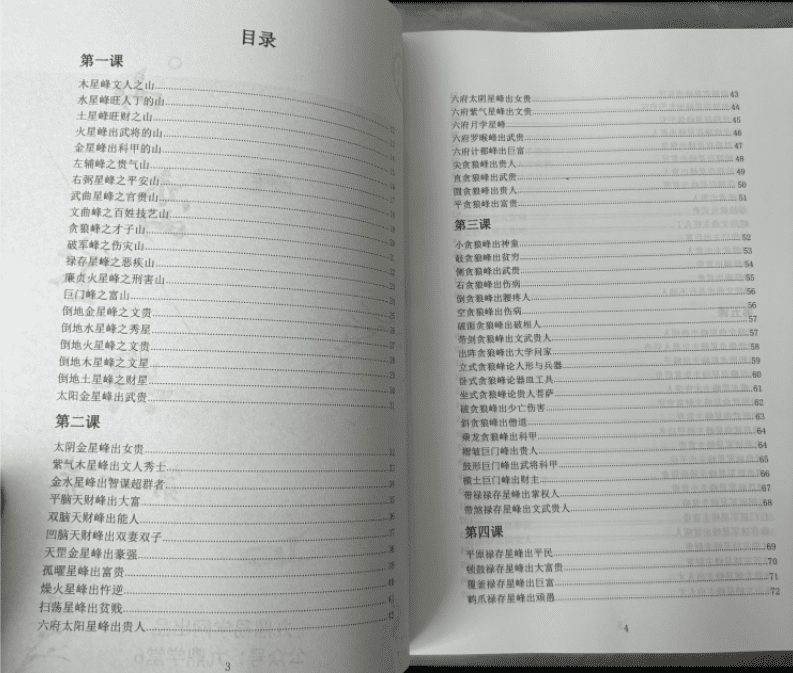 目录
第一课
木星峰文人之山
水星峰旺人丁的山
土星峰旺财之山
火星峰出武将的山
金星峰出科甲的山
左辅峰之贵气山
右弼星峰之平安山
武曲星峰之官贵山
文曲峰之百姓技艺山
贪狼峰之才子山
破军峰之伤灾山
禄存星峰之恶疾山
廉贞火星峰之刑害山
巨门峰之富山
倒地金星峰之文贵
倒地水星峰之秀星
倒地火星峰之文贵
倒地木星峰之文星
倒地土星峰之财星
太阳金星峰出武贵
第二课
太阴金星峰出女贵
紫气木星峰出文人秀士
金水星峰出智谋超群者
平脑天财峰出大富
双脑天财峰出能人
凹脑天财峰出双妻双子
天罡金星峰出豪强
孤曜星峰出富贵
燥火星峰出忤逆
扫荡星峰出贫贱
六府太阳星峰出贵人
3
六府太阴星峰出女贵 43
六府紫气星峰出文贵 44
六府月孛星峰 45
六府罗睺峰出武贵 46
六府计都峰出巨富 47
尖贪狼峰出贵人 48
直贪狼峰出武贵 49
圆贪狼峰出贵人 50
平贪狼峰出富贵 51
第三课
小贪狼峰出神童 52
敧贪狼峰出贫穷 53
侧贪狼峰出武贵 54
石贪狼峰出伤病 55
倒贪狼峰出腰疼人 56
空贪狼峰出伤病 56
破面贪狼峰出破相人 57
带剑贪狼峰出文武贵人 57
出阵贪狼峰出大学问家 58
立式贪狼峰论人形与兵器 59
卧式贪狼峰论器皿工具 60
坐式贪狼峰论贵人菩萨 61
破贪狼峰出少亡伤害 62
斜贪狼峰出僧道 63
乘龙贪狼峰出科甲 64
褶皱巨门峰出贵人 64
鼓形巨门峰出武将科甲 65
横土巨门峰出财主 66
带禄禄存星峰出掌权人 67
带煞禄存星峰出文武贵人 68
第四课
平原禄存星峰出平民 69
顿鼓禄存星峰出大富贵 70
覆釜禄存星峰出巨富 71
鹤爪禄存星峰出顽愚 72
4